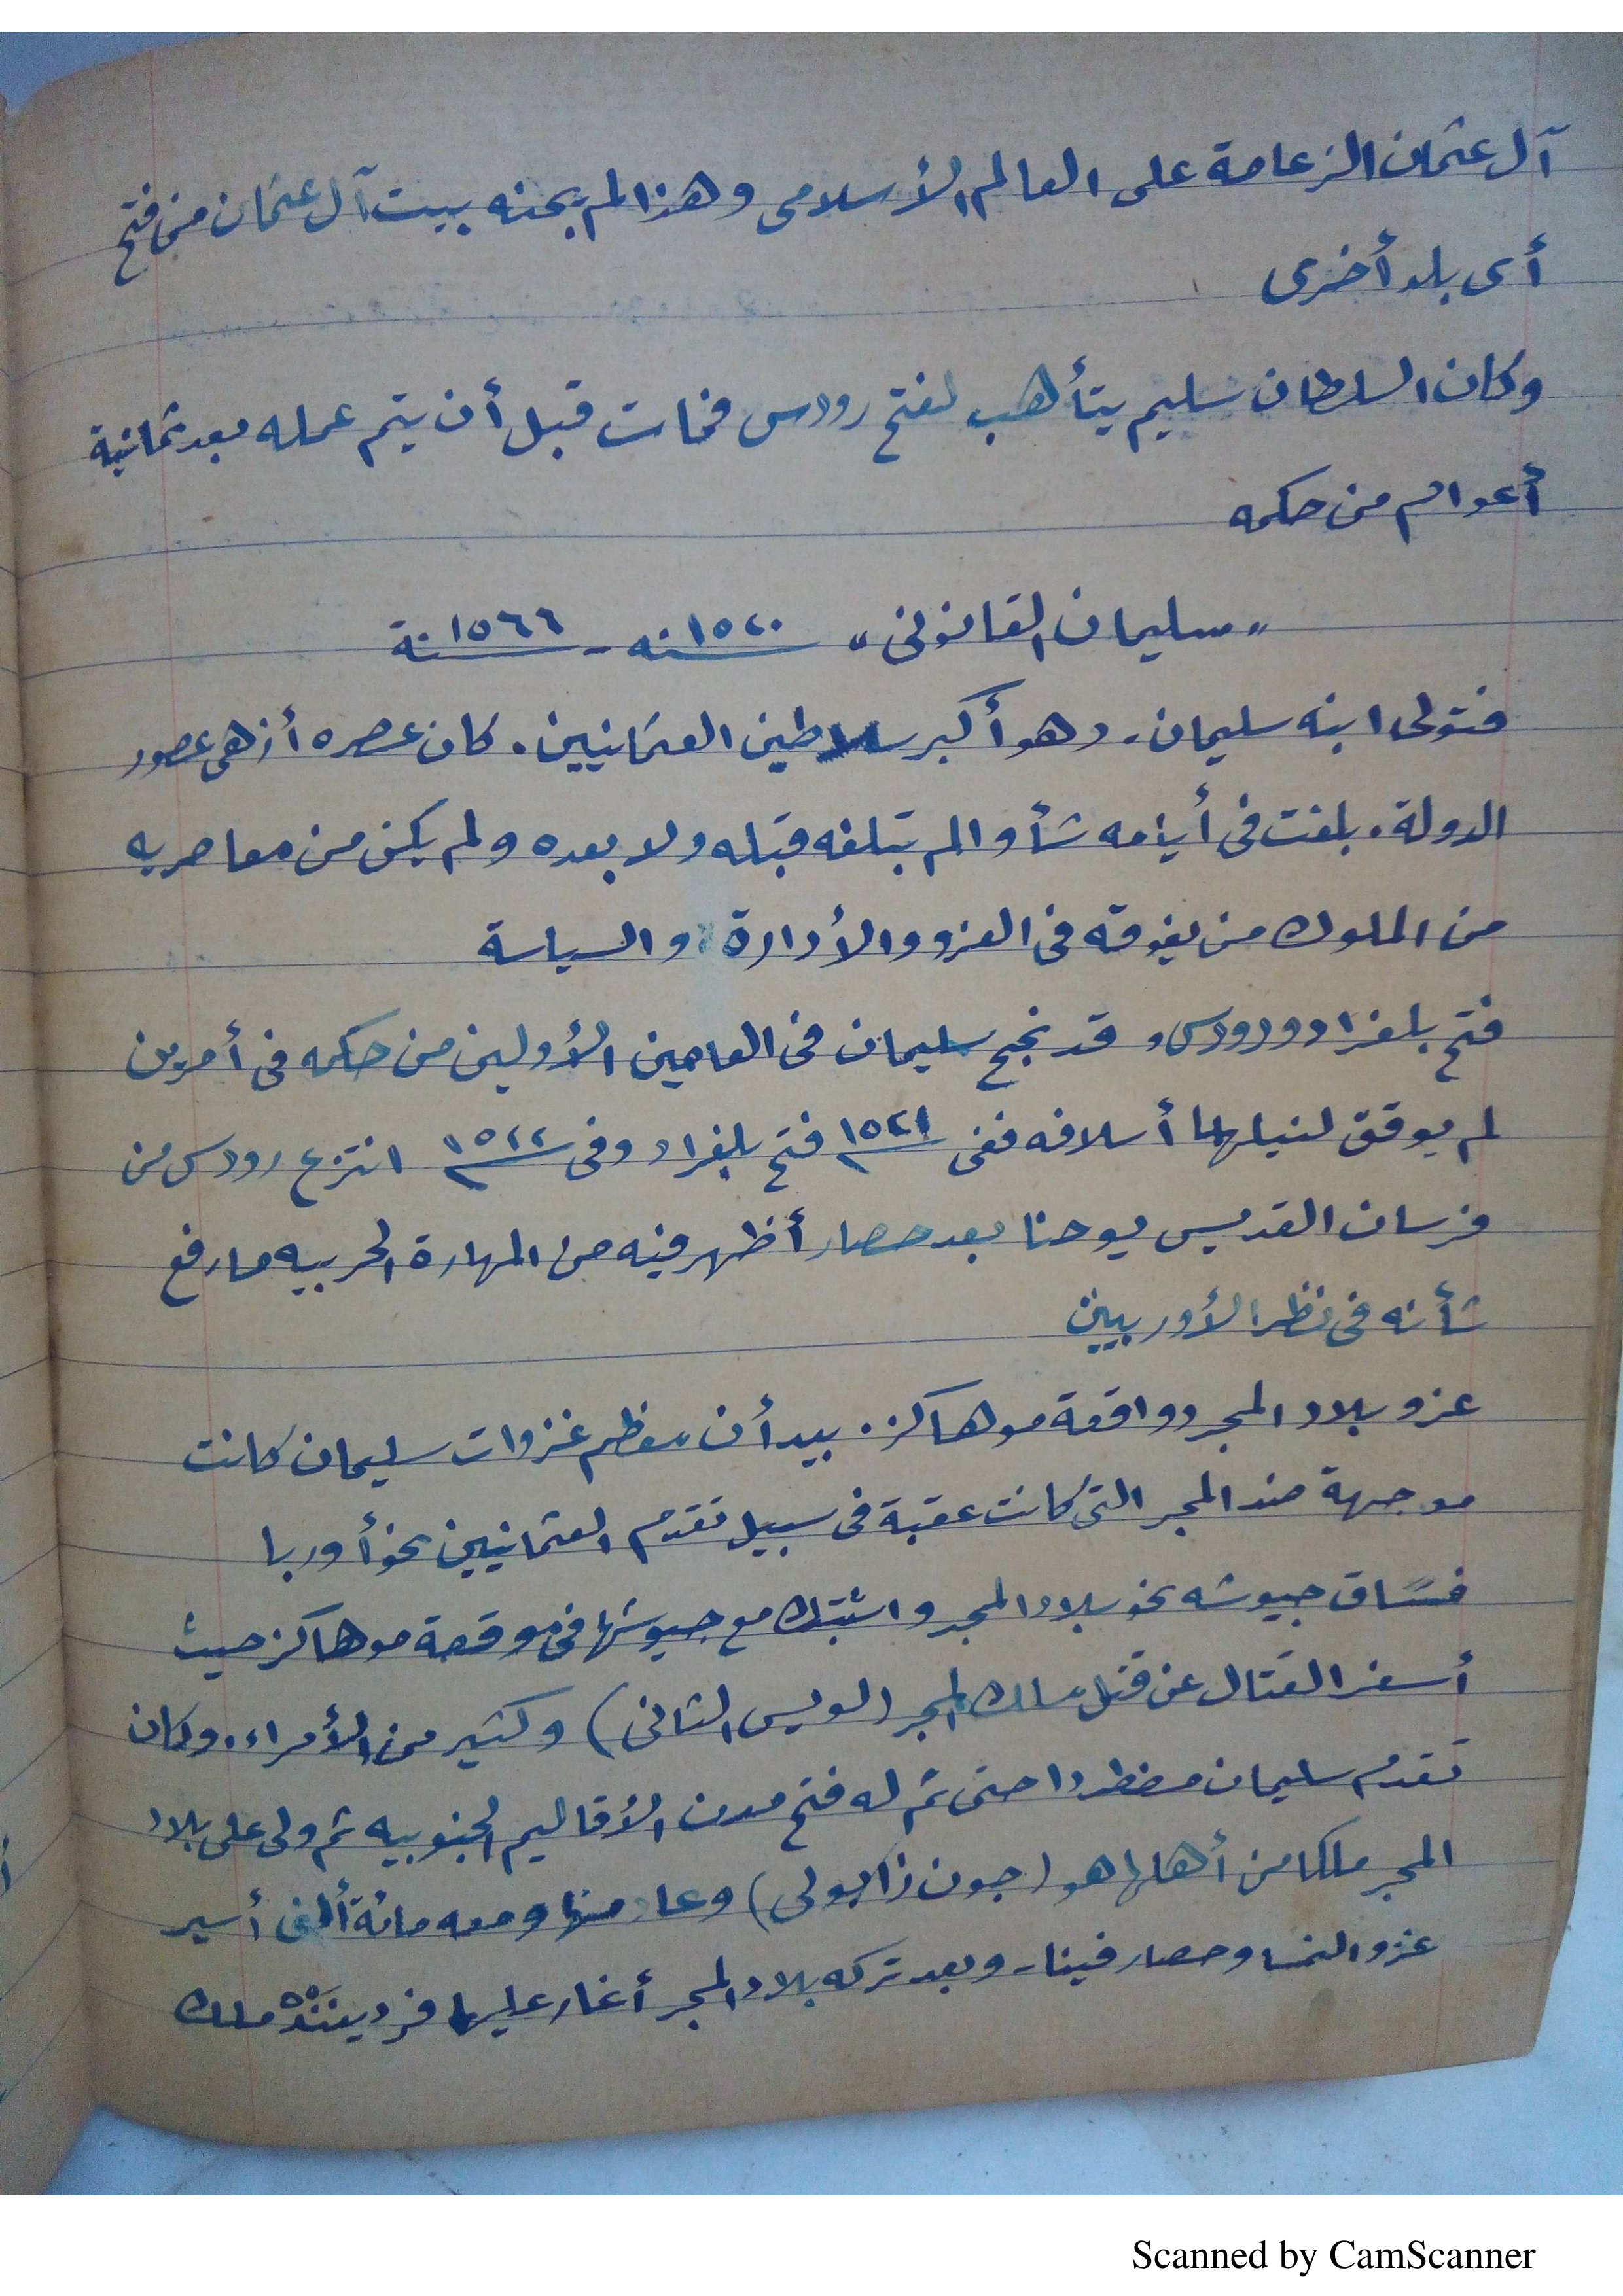 آل عثمان الزعامة على العالم الأسلامى وهذا لم يجنه بيت آل عثمان من فتح
أى بلد أخرى
وكان السلطان سليم يتأهب لفتح رودس فمات قبل أن يتم عمله بعد ثمانية
أعوام من حكمه
"سليمان القانونى" ١٥٢٠ سنه - ١٥٦٦ سنة
فتولى ابنه سليمان - وهو أكبر سلاطين العثمانيين . كان عصره أزهى عصور
الدولة . بلغت فى أيامه شأوا لم تبلغه قبله ولا بعده ولم يكن من معاصريه
من الملوك من يفوقه فى الغزو والأدارة والسياسة
فتح بلغراد ورودس وقد نجح سليمان فى العامين الأولين من حكمه فى أمرين
لم يوفق لنيلهما أسلافه ففى سنة ١٥٢١م فتح بلغراد وفى سنة ١٥٢٢م انتزع رودس من
فرسان القديس يوحنا بعد حصار أظهر فيه من المهارة الحربيه ما رفع
شأنه فى نظر الأوربيين
غزو بلاد المجر وواقعة موهاكز . بيد أن معظم غزوات سليمان كانت
موجهة ضد المجر التى كانت عقبة فى سبيل تقدم العثمانيين نحو أوربا
فساق جيوشه نحو بلاد المجر واشتبك مع جيوشها فى موقعة موهاكز حيث
أسفر القتال عن قتل ملك المجر (لويس الثانى) وكثير من الأمراء . وكان
تقدم سليمان مضطردا حتى تم له فتح مدن الأقاليم الجنوبيه ثم ولى على بلاد
المجر ملكا من أهلها هو (جون زابولى) وعاد منها ومعه مائة ألف أسير
غزو النمسا وحصار فينا - وبعد تركه بلاد المجر أغار عليها فرديننده ملك
Scanned by CamScanner